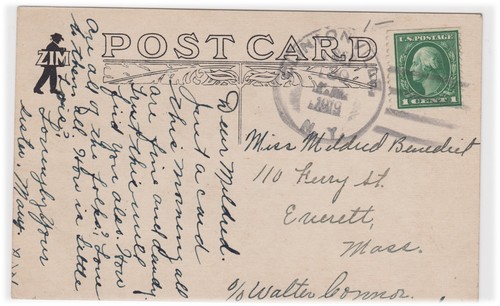 ZIM
POST CARD
U.S. POSTAGE
1 CENT 1
1919
N.Y.
Dear Mildred.
Just a card
this morning all
are fine and dandy
Trust this will
find you also. How
are all of the folks? Love
to them all. How is little
Lovingly Your
sister, Mary
Miss Mildred Benedict
110 Ferry St.
Everett,
Mass.
c/o Walter Connor.